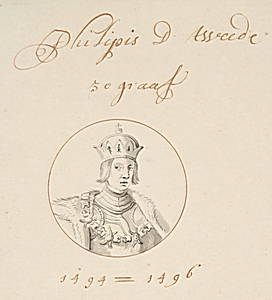 Philipis D. Tweede
30 graaf
1494 = 1496